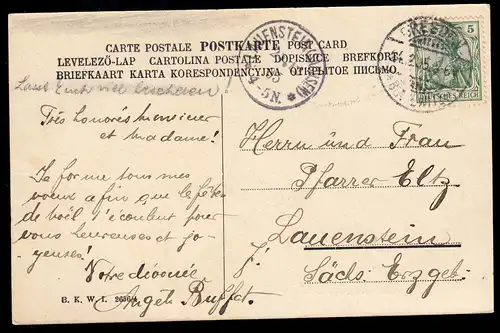 CARTE POSTALE POSTKARTE POST CARD
LEVELEZŐ-LAP CARTOLINA POSTALE DOPISNICE BREFKORT
BRIEFKAART KARTA KORESPONDENCYJNA ОТКРЫТОЕ ПИСЬМО.
LAUENSTEIN (SACHSEN)
5
DEUTSCHES REICH
Lasst Euch viel bescheren
Très honorés monsieur
et madame!
Je forme tous mes
voeux afin que les fêtes
de noël s'écoulent pour
vous heureuses et jo-
yeuses!
Votre dévouée
B. K. W. I.
Herrn und Frau
Pfarrer Eltz
Lauenstein
Sächs. Erzgeb.